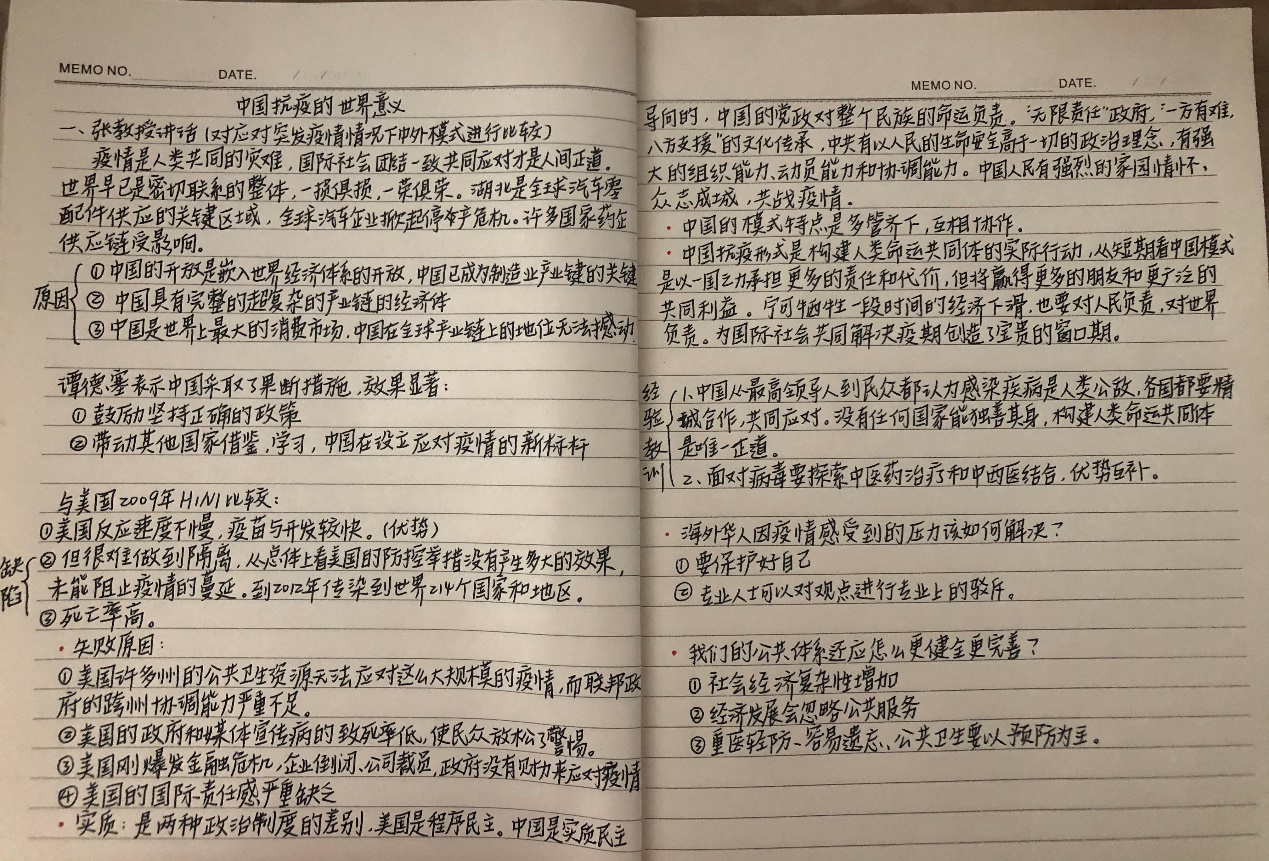 MEMO NO. DATE. / /
中国抗疫的世界意义
一、张教授讲话(对应对突发疫情情况下中外模式进行比较)
疫情是人类共同的灾难，国际社会团结一致共同应对才是人间正道。
世界早已是密切联系的整体，一损俱损，一荣俱荣。湖北是全球汽车零
配件供应的关键区域，全球汽车企业掀起停产危机。许多国家药企
供应链受影响。
原因
①中国的开放是嵌入世界经济体系的开放，中国已成为制造业产业链的关键
②中国具有完整的超复杂的产业链的经济体
③中国是世界上最大的消费市场，中国在全球产业链上的地位无法撼动.
谭德塞表示中国采取了果断措施，效果显著:
①鼓励坚持正确的政策
②带动其他国家借鉴，学习，中国在设立应对疫情的新标杆
与美国2009年H1N1比较:
①美国反应速度不慢，疫苗与开发较快。(优势)
缺陷
②但很难做到隔离，从总体上看美国的防控举措没有产生多大的效果，
未能阻止疫情的蔓延。到2012年传染到世界214个国家和地区。
③死亡率高。
·失败原因:
①美国许多州的公共卫生资源无法应对这么大规模的疫情，而联邦政
府的跨州协调能力严重不足。
②美国的政府和媒体宣传病的致死率低，使民众放松了警惕。
③美国刚爆发金融危机，企业倒闭、公司裁员，政府没有财力来应对疫情
④美国的国际责任感严重缺乏
·实质:是两种政治制度的差别，美国是程序民主。中国是实质民主
MEMO NO. DATE. / /
导向的，中国的党政对整个民族的命运负责。"无限责任"政府，"一方有难，
八方支援"的文化传承，中共有以人民的生命安全高于一切的政治理念，有强
大的组织能力、动员能力和协调能力。中国人民有强烈的家国情怀，
众志成城，共战疫情。
·中国的模式特点是多管齐下，互相协作。
·中国抗疫形式是构建人类命运共同体的实际行动，从短期看中国模式
是以一国之力承担更多的责任和代价，但将赢得更多的朋友和更广泛的
共同利益。宁可牺牲一段时间的经济下滑，也要对人民负责，对世界
负责。为国际社会共同解决疫期创造了宝贵的窗口期。
经验教训
1、中国从最高领导人到民众都认为感染疾病是人类公敌，各国都要精
诚合作，共同应对。没有任何国家能独善其身，构建人类命运共同体
是唯一正道。
2、面对病毒要探索中医药治疗和中西医结合，优势互补。
·海外华人因疫情感受到的压力该如何解决？
①要保护好自己
②专业人士可以对观点进行专业上的驳斥。
·我们的公共体系还应怎么更健全更完善？
①社会经济复杂性增加
②经济发展会忽略公共服务
③重医轻防、容易遗忘、公共卫生要以预防为主。